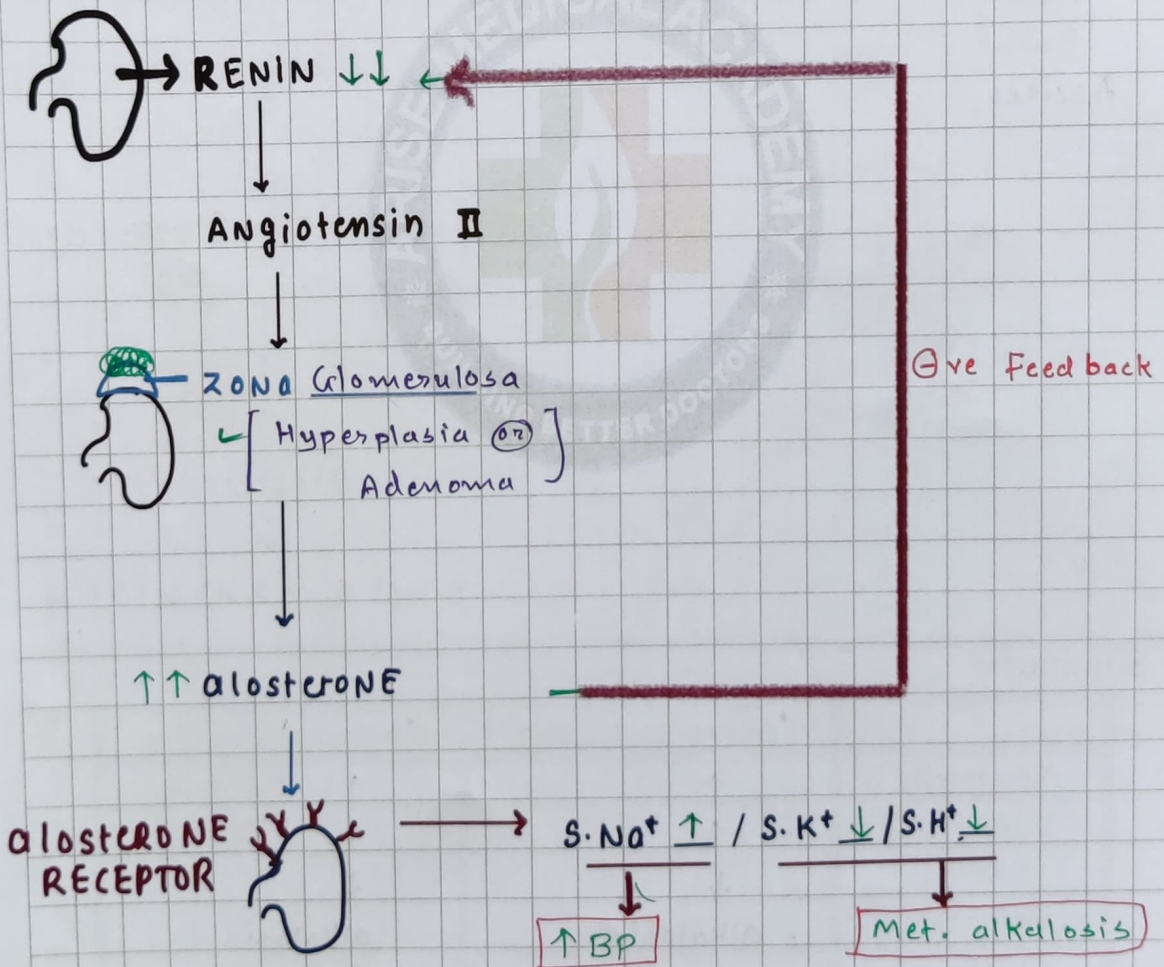 RENIN ↓↓ ←
Angiotensin II
Zona Glomerulosa
✓ [ Hyperplasia or
Adenoma ]
⊖ve Feedback
↑↑ alosteroNE
alosteroNE
RECEPTOR
S.Na⁺ ↑ / S.K⁺ ↓ / S.H⁺ ↓
↑ BP
Met. alkalosis
ARISE MEDICAL ACADEMY
BETTER DOCTORS